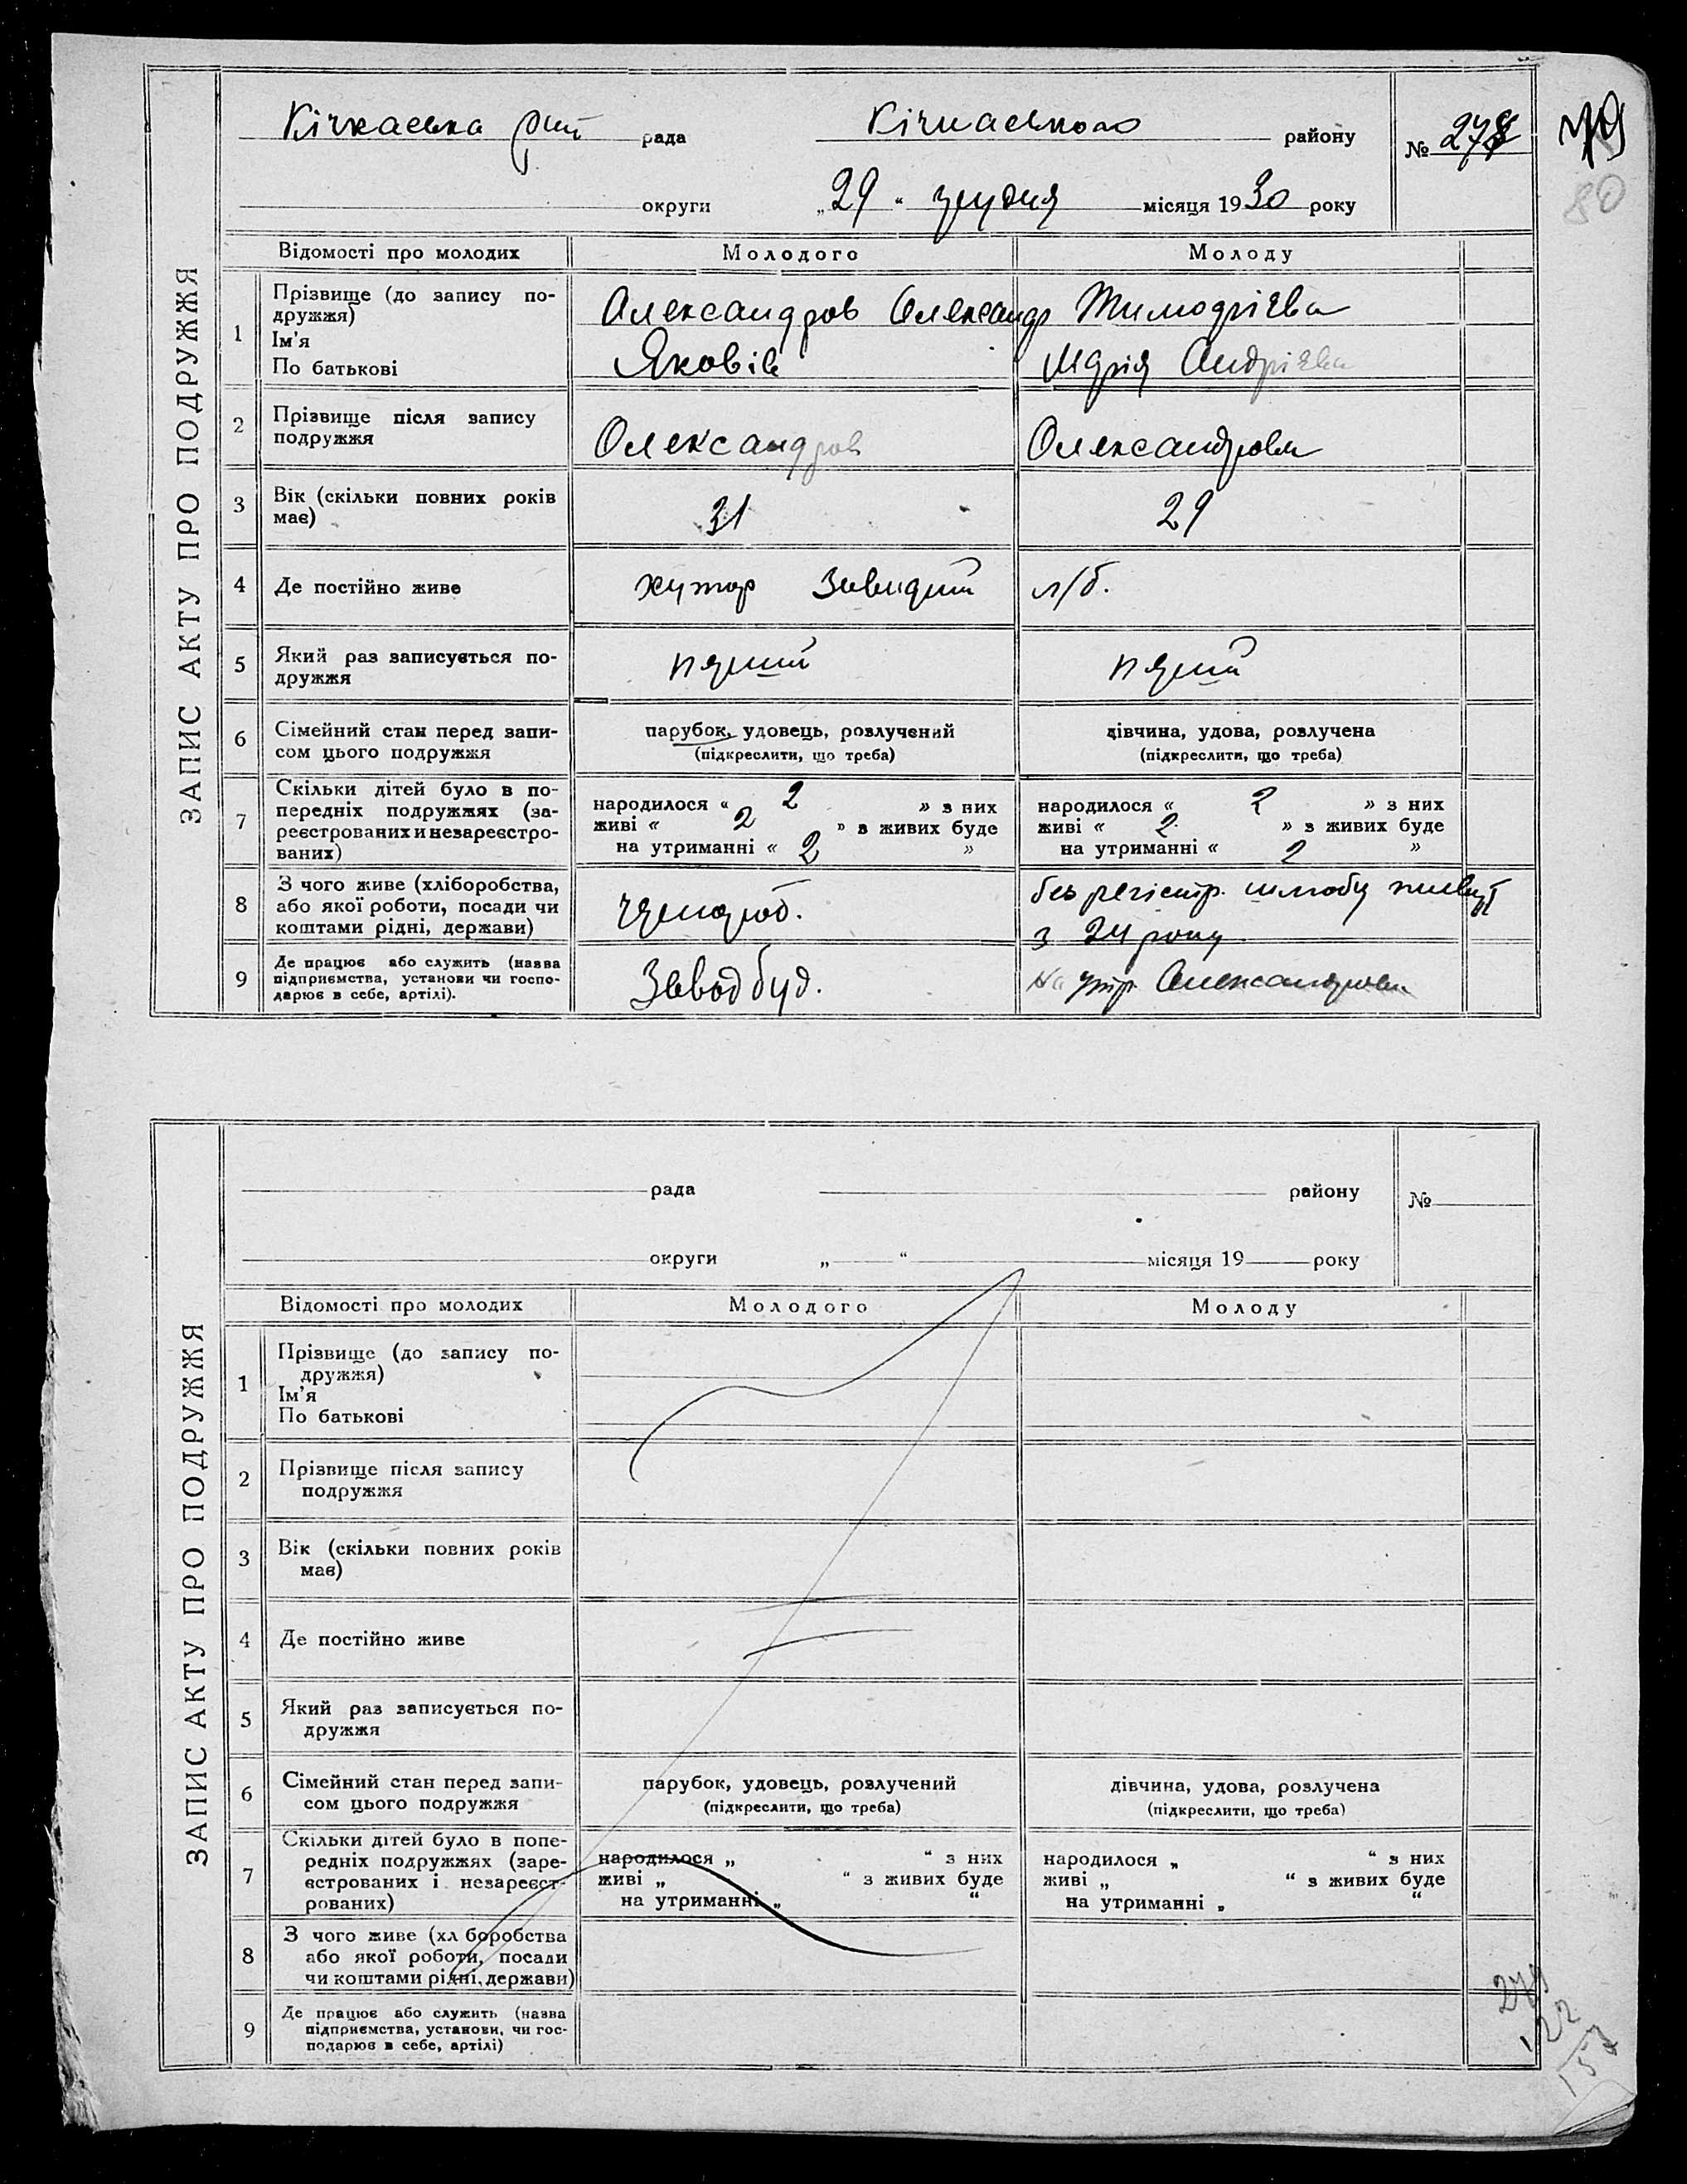 ЗАПИС АКТУ ПРО ПОДРУЖЖЯ
Кічкаська рада
Кічкаського району
№ 278
79
80
округи „29“ грудня місяця 1930 року
Відомості про молодих Молодого Молоду
1 Прізвище (до запису по-
дружжя)
Ім'я
По батькові
Александров Олександр
Яковів
Тимофієва
Марія Андрієва
2 Прізвище після запису
подружжя
Олександров
Олександрова
3 Вік (скільки повних років
має)
31
29
4 Де постійно живе
хутор
л/б.
5 Який раз записується по-
дружжя
перший
перший
6 Сімейний стан перед запи-
сом цього подружжя
парубок, удовець, розлучений
(підкреслити, що треба)
дівчина, удова, розлучена
(підкреслити, що треба)
7 Скільки дітей було в по-
передніх подружжях (за-
реєстрованих и незареєстро-
ваних)
народилося « 2 » з них
живі « 2 » з живих буде
на утриманні « 2 »
народилося « 2 » з них
живі « 2 » з живих буде
на утриманні « 2 »
8 З чого живе (хліборобства,
або якої роботи, посади чи
коштами рідні, держави)
чорнороб.
без регістр. шлюбу живуть
з 24 року
9 Де працює або служить (назва
підприємства, установи чи госпо-
дарює в себе, артілі).
Заводбуд.
на утр. Олександрова
ЗАПИС АКТУ ПРО ПОДРУЖЖЯ
рада району №
округи „ “ місяця 19 року
Відомості про молодих Молодого Молоду
1 Прізвище (до запису по-
дружжя)
Ім'я
По батькові
2 Прізвище після запису
подружжя
3 Вік (скільки повних років
має)
4 Де постійно живе
5 Який раз записується по-
дружжя
6 Сімейний стан перед запи-
сом цього подружжя
парубок, удовець, розлучений
(підкреслити, що треба)
дівчина, удова, розлучена
(підкреслити, що треба)
7 Скільки дітей було в попе-
редніх подружжях (заре-
єстрованих і незареєст-
рованих)
народилося „ “ з них
живі „ “ з живих буде
на утриманні „ “
народилося „ “ з них
живі „ “ з живих буде
на утриманні „ “
8 З чого живе (хл боробства
або якої роботи, посади
чи коштами рідні, держави)
9 Де працює або служить (назва
підприємства, установи, чи гос-
подарює в себе, артілі)
279
122
157